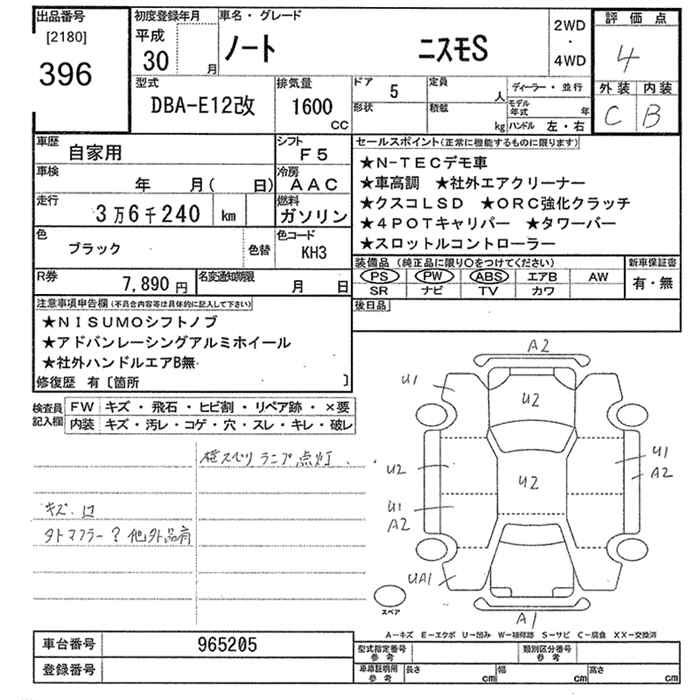 出品番号
[2180]
396
初度登録年月
平成
30 月
車名・グレード
ノート ニスモS
2WD
・
4WD
評価点
4
外装 内装
C B
型式
DBA-E12改
排気量
1600
CC
ドア 5
形状
定員 人
積載 kg
ディーラー・並行
モデル年式 年
ハンドル 左・右
車歴
自家用
シフト
F5
車検
年 月( 日)
冷房
AAC
走行
3万6千240 km
燃料
ガソリン
色
ブラック
色替
色コード
KH3
R券
7,890円
名変通知期限
月 日
セールスポイント(正常に機能するものに限ります)
★N-TECデモ車
★車高調 ★社外エアクリーナー
★クスコLSD ★ORC強化クラッチ
★4POTキャリパー ★タワーバー
★スロットルコントローラー
装備品(純正品に限り○をつけてください)
PS PW ABS エアB AW
SR ナビ TV カワ
新車保証書
有・無
後日品
注意事項申告欄(不具合内容等は具体的に記入して下さい)
★NISUMOシフトノブ
★アドバンレーシングアルミホイール
★社外ハンドルエアB無
修復歴 有〔箇所 〕
検査員
記入欄
FW キズ・飛石・ヒビ割・リペア跡・×要
内装 キズ・汚レ・コゲ・穴・スレ・キレ・破レ
横スベリ ランプ点灯.
キズ.凹
タトマフラー? 他外品有
A2
U1
U2
U2
U2
U1
A2
U1
A2
UA1
A1
スペア
A-キズ E-エクボ U-凹み W-補修跡 S-サビ C-腐食 XX-交換済
車台番号
965205
登録番号
型式指定番号
参考
類別区分番号
参考
車庫証明用
参考
長さ cm
幅 cm
高さ cm